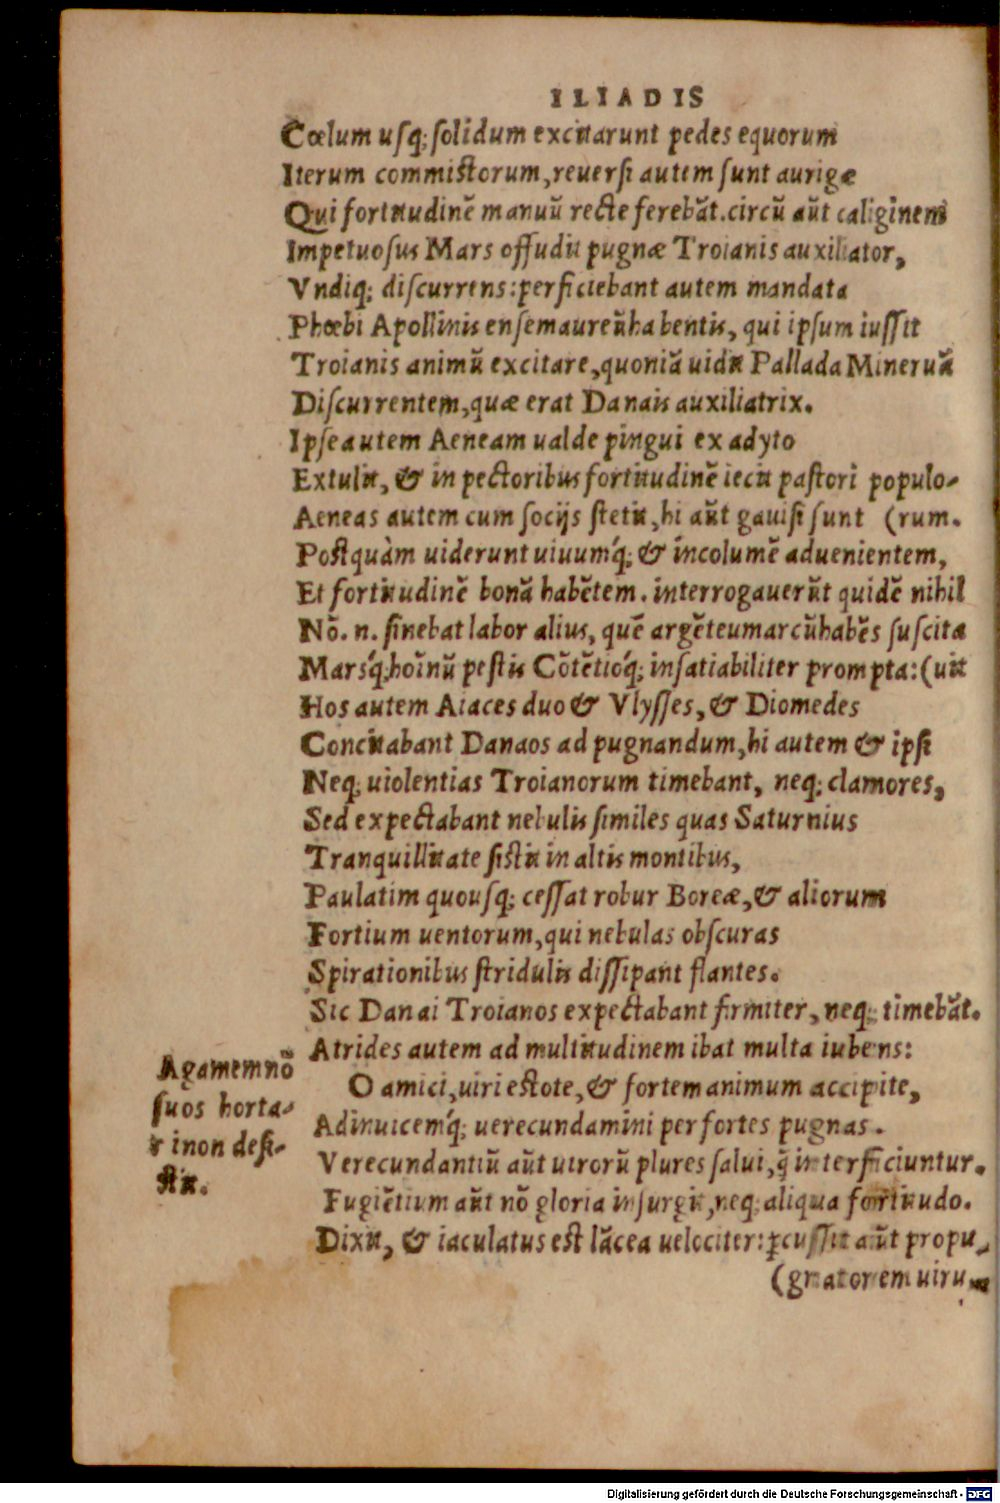 ILIADIS
Cœlum uſq; ſolidum excitarunt pedes equorum
Iterum commiſtorum, reuerſi autem ſunt aurigæ
Qui fortitudinē manuū recte ferebāt. circū aūt caliginem
Impetuoſus Mars offudit pugnæ Troianis auxiliator,
Vndiq; diſcurrens: perficiebant autem mandata
Phœbi Apollinis enſem aureū habentis, qui ipſum iuſſit
Troianis animū excitare, quoniā uidit Pallada Mineruā
Diſcurrentem, quæ erat Danais auxiliatrix.
Ipſe autem Aeneam ualde pingui ex adyto
Extulit, & in pectoribus fortitudinē iecit paſtori populo-
Aeneas autem cum ſocijs ſtetit, hi aūt gauiſi ſunt (rum.
Poſtquàm uiderunt uiuumq́; & incolumē aduenientem,
Et fortitudinē bonā habētem. interrogauerūt quidē nihil
Nō. n. ſinebat labor alius, quē argēteum arcū habēs ſuſcita
Marsq́; hoīnū peſtis Cōtētioq́; inſatiabiliter prompta: (uit
Hos autem Aiaces duo & Vlyſſes, & Diomedes
Concitabant Danaos ad pugnandum, hi autem & ipſi
Neq; uiolentias Troianorum timebant, neq; clamores,
Sed expectabant nebulis ſimiles quas Saturnius
Tranquillitate ſiſtit in altis montibus,
Paulatim quouſq; ceſſat robur Boreæ, & aliorum
Fortium uentorum, qui nebulas obſcuras
Spirationibus ſtridulis diſſipant flantes.
Sic Danai Troianos expectabant firmiter, neq; timebāt.
Atrides autem ad multitudinem ibat multa iubens:
Agamemnō
ſuos horta-
ri non deſi-
ſtit.
O amici, uiri eſtote, & fortem animum accipite,
Adinuicemq́; uerecundamini per fortes pugnas.
Verecundantiū aūt uirorū plures ſalui, q̄ interficiuntur.
Fugiētium aūt nō gloria inſurgit, neq; aliqua fortitudo.
Dixit, & iaculatus eſt lācea uelociter: ꝑcuſſit aūt propu-
(gnatorem uirum
Digitalisierung gefördert durch die Deutsche Forschungsgemeinschaft - DFG